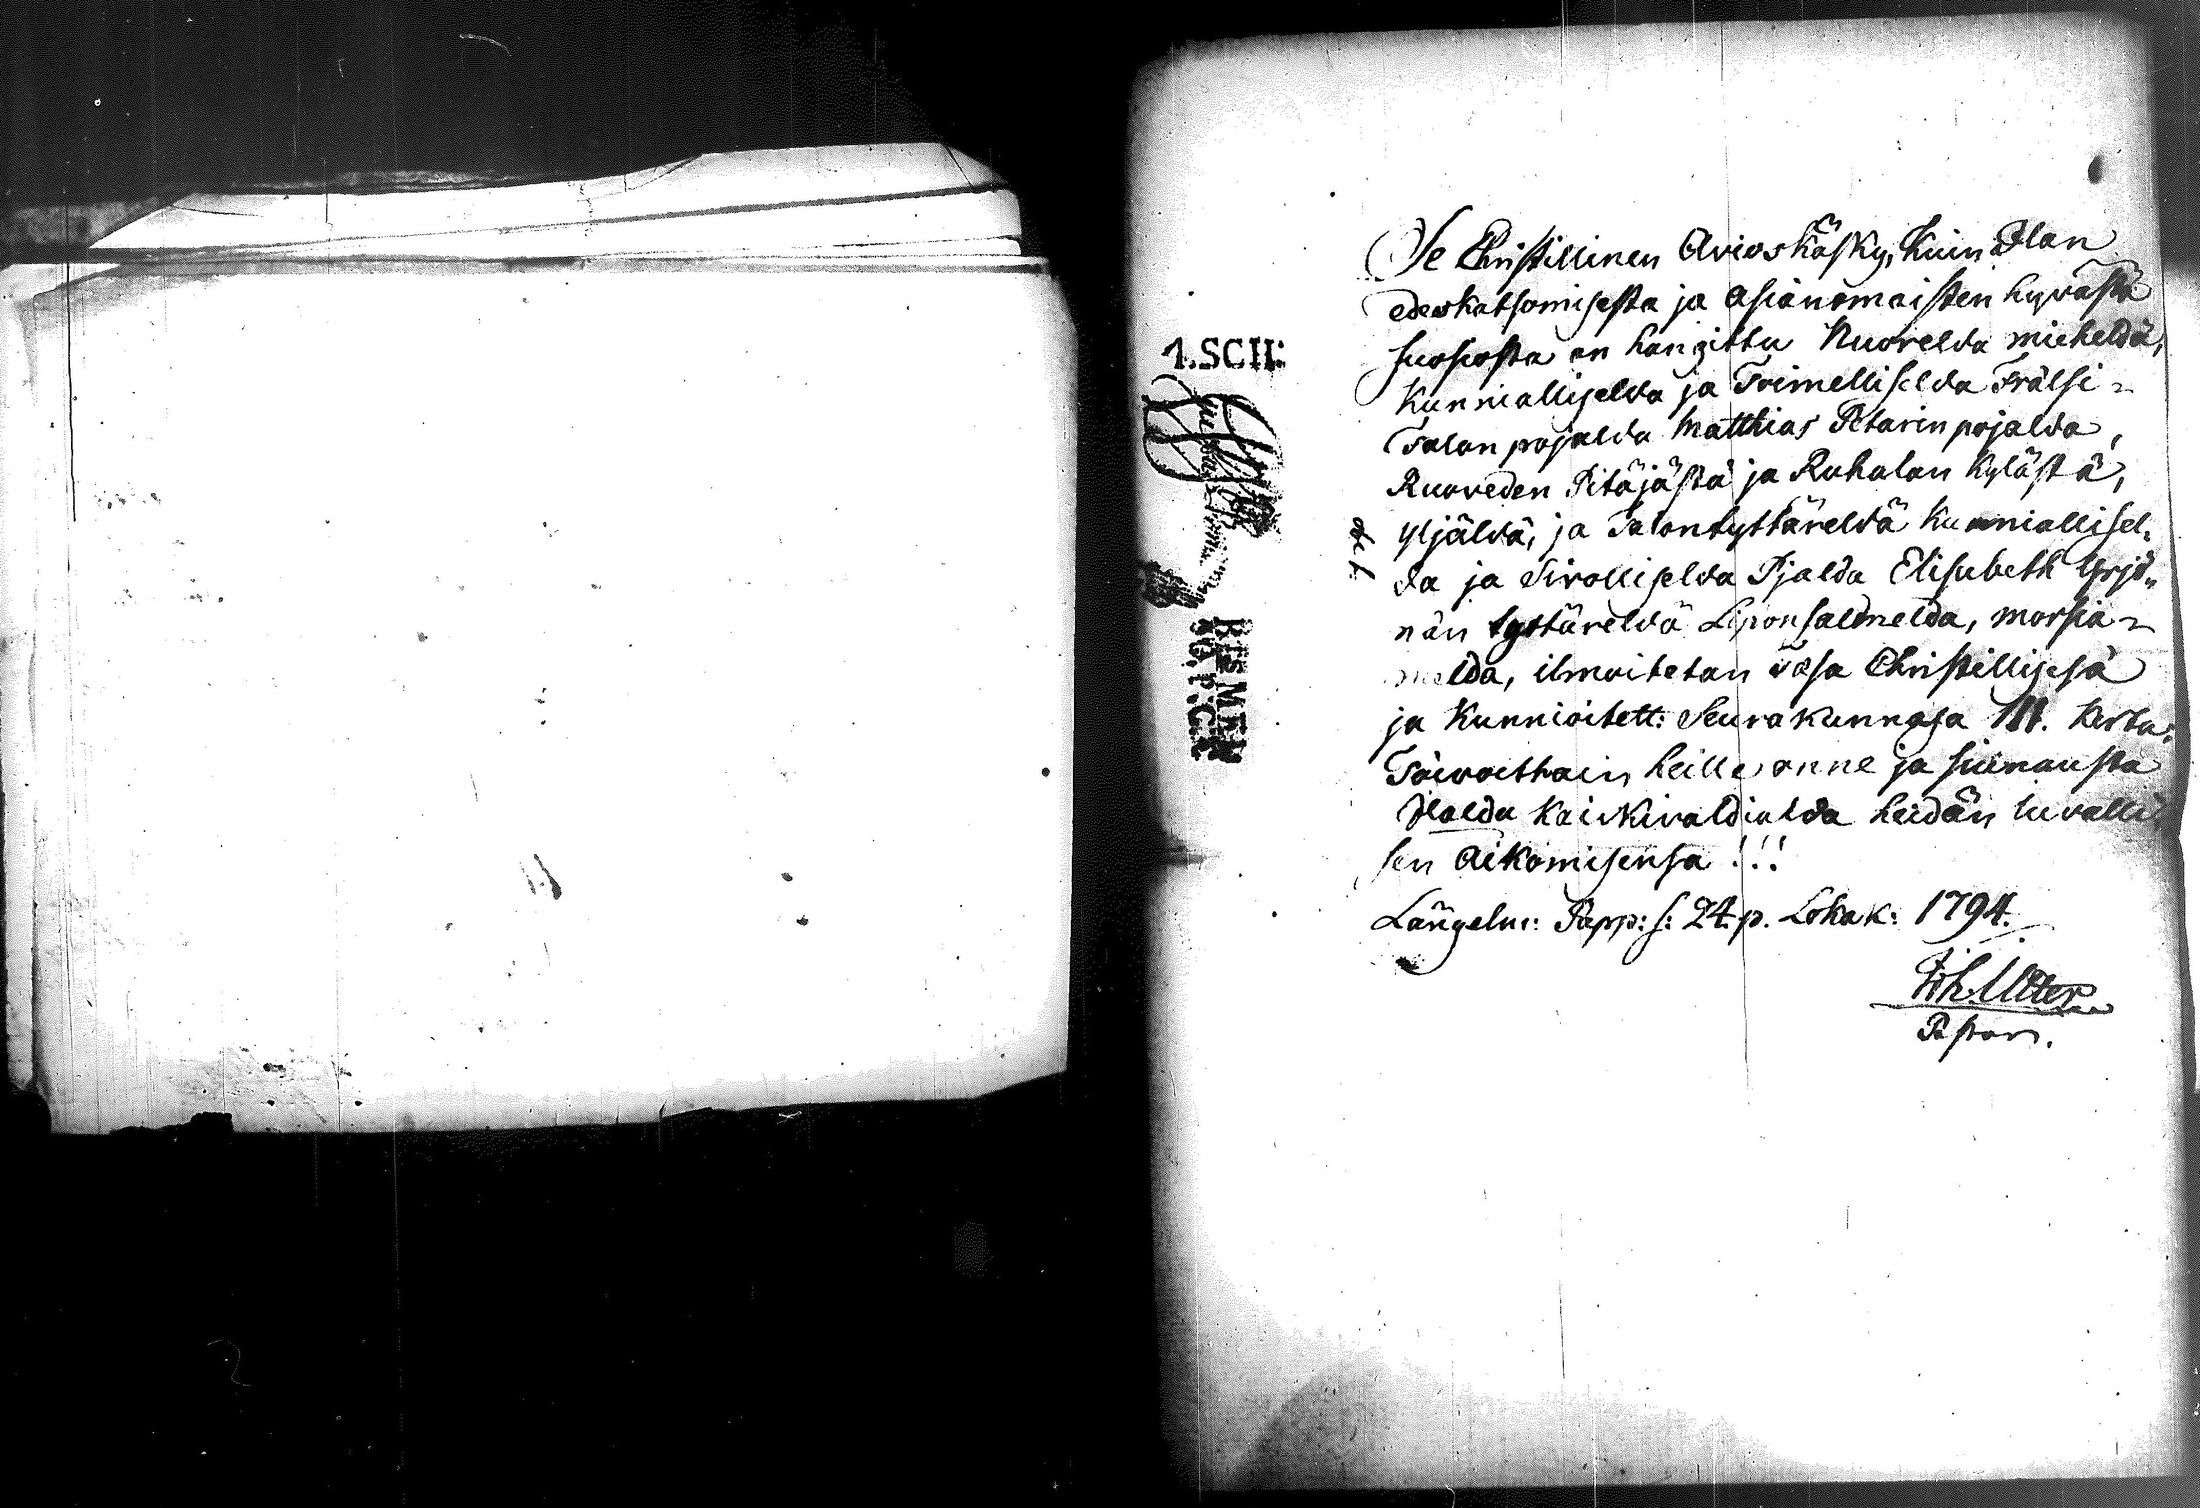 Se Christillinen Avioskäsky, kuin Jlan
edeskatsomisesta ja asianomaisten hyvästä
suosiosta on hangittu Nuorelda mieheldä,
Kunnialliselda ja Toimelliselda Frälsi=
Talonpojalda Matthias Petarinpojalda,
Ruoveden Pitäjästä ja Ruhalan Kylästä,
Yljäldä, ja Talontyttäreldä Kunniallisel=
da ja Sivolliselda Pjalda Elisabeth Yrjö=
nän tytäreldä Liponsalmelda, morsia=
melda, ilmoitetan täsä Christillisesä
ja Kunnioitett: Seurakunnasa III. kerta:
Toivotthain heille onne ja siunausta
Jlalda Kaickivaldialda heidän luvalli=
sen Aikomisensa !!!
Längelm: Papp: s: 24. p. Lokak: 1794.
Pastor.
1.SCH: